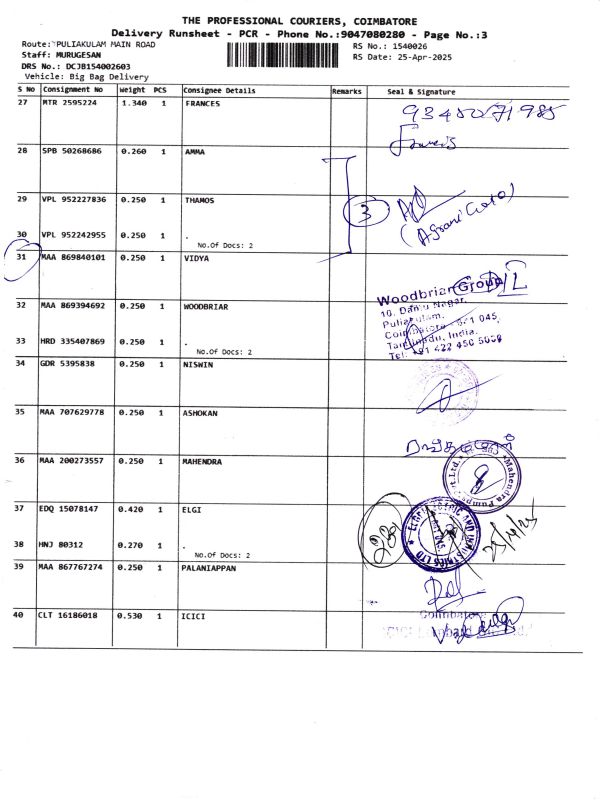 THE PROFESSIONAL COURIERS, COIMBATORE
Delivery Runsheet - PCR - Phone No.:9047080280 - Page No.:3
Route: PULIAKULAM MAIN ROAD
RS No.: 1540026
Staff: MURUGESAN
RS Date: 25-Apr-2025
DRS No.: DCJB154002603
Vehicle: Big Bag Delivery
S No Consignment No Weight PCS Consignee Details Remarks Seal & Signature
27 MTR 2595224 1.340 1 FRANCES
Francis
28 SPB 50268686 0.260 1 AMMA
29 VPL 952227836 0.250 1 THAMOS
3
30 VPL 952242955 0.250 1 .
No.Of Docs: 2
31 MAA 869840101 0.250 1 VIDYA
32 MAA 869394692 0.250 1 WOODBRIAR
Woodbriar Group
Puliakulam,
Coimbatore - 641 045,
Tamilnadu, India.
33 HRD 335407869 0.250 1 .
No.Of Docs: 2
34 GDR 5395838 0.250 1 NISWIN
35 MAA 707629778 0.250 1 ASHOKAN
36 MAA 200273557 0.250 1 MAHENDRA
Mahendra Pumps
37 EDQ 15078147 0.420 1 ELGI
38 HNJ 80312 0.270 1 .
No.Of Docs: 2
25/4/25
39 MAA 867767274 0.250 1 PALANIAPPAN
40 CLT 16186018 0.530 1 ICICI
Coimbatore